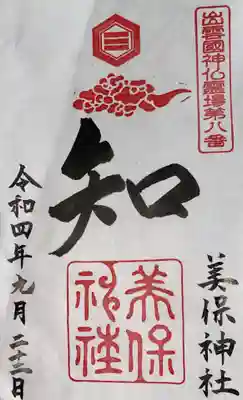 出雲國神仏霊場第八番
知
美保神社
美保神社
令和四年九月二十三日